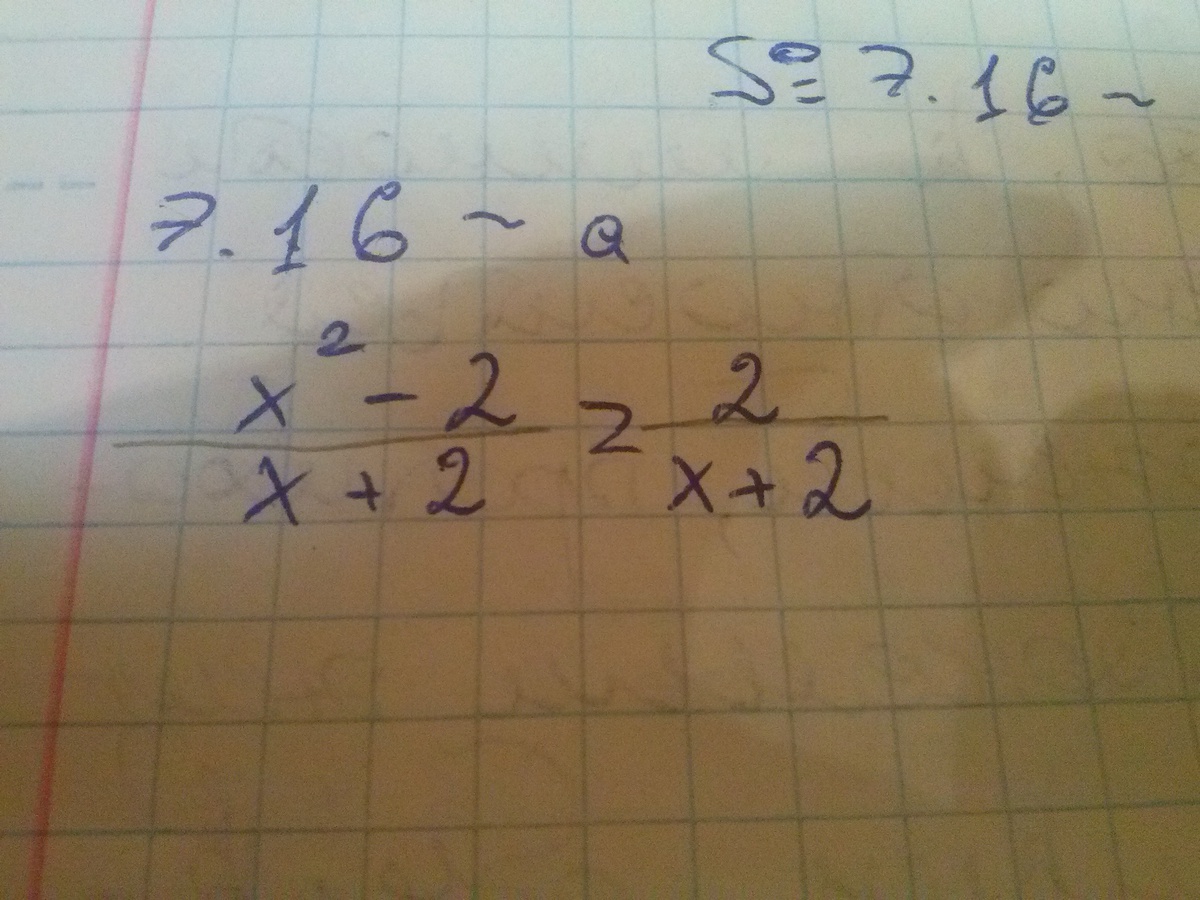 № 7.16 ~
7.16 ~ a
x² - 2 / x + 2 = 2 / x + 2